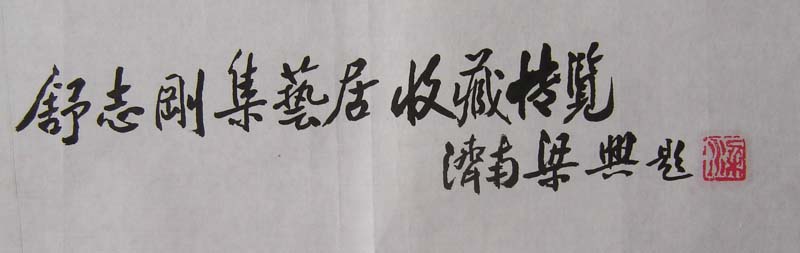 舒志剛集藝居收藏博覽
濟南梁興題
梁